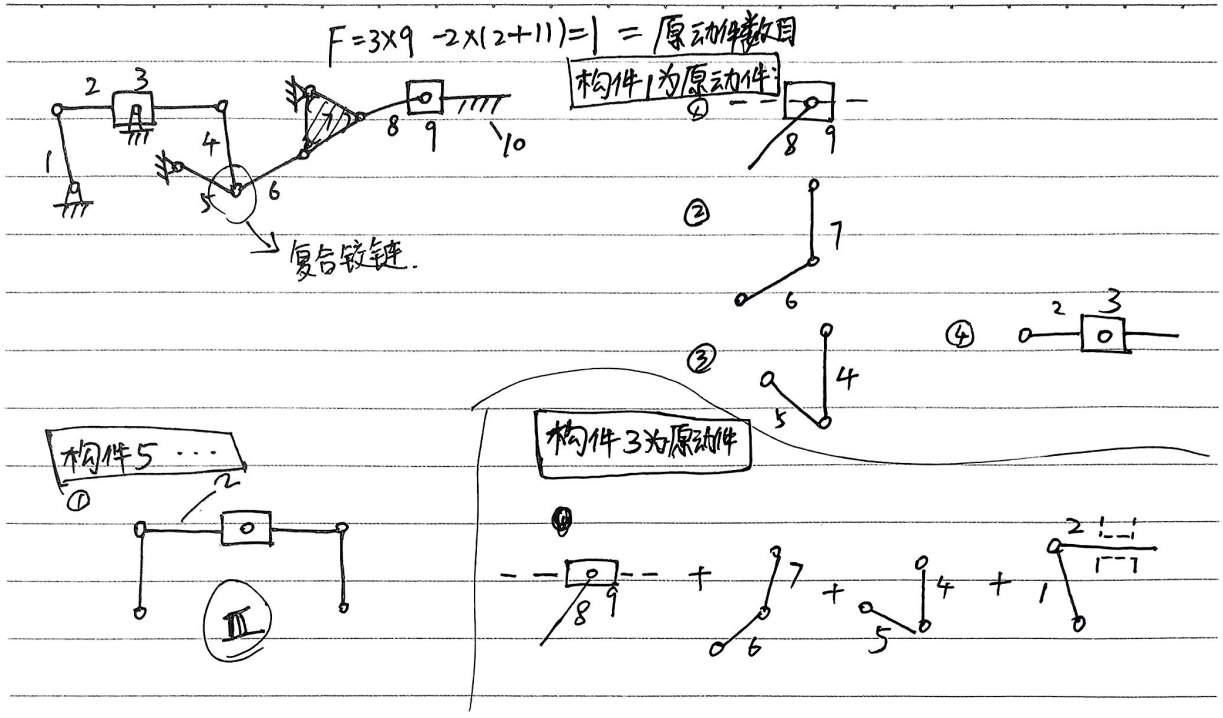 F=3×9 -2×(2+11)=1 = 原动件数目
构件1为原动件:
2 3
1
4
5
6
7
8
9
10
复合铰链.
①
8 9
②
7
6
③
4
5
④
2 3
构件5 ···
①
2
Ⅲ
构件3为原动件
8 9 + 6 7 + 5 4 + 1 2